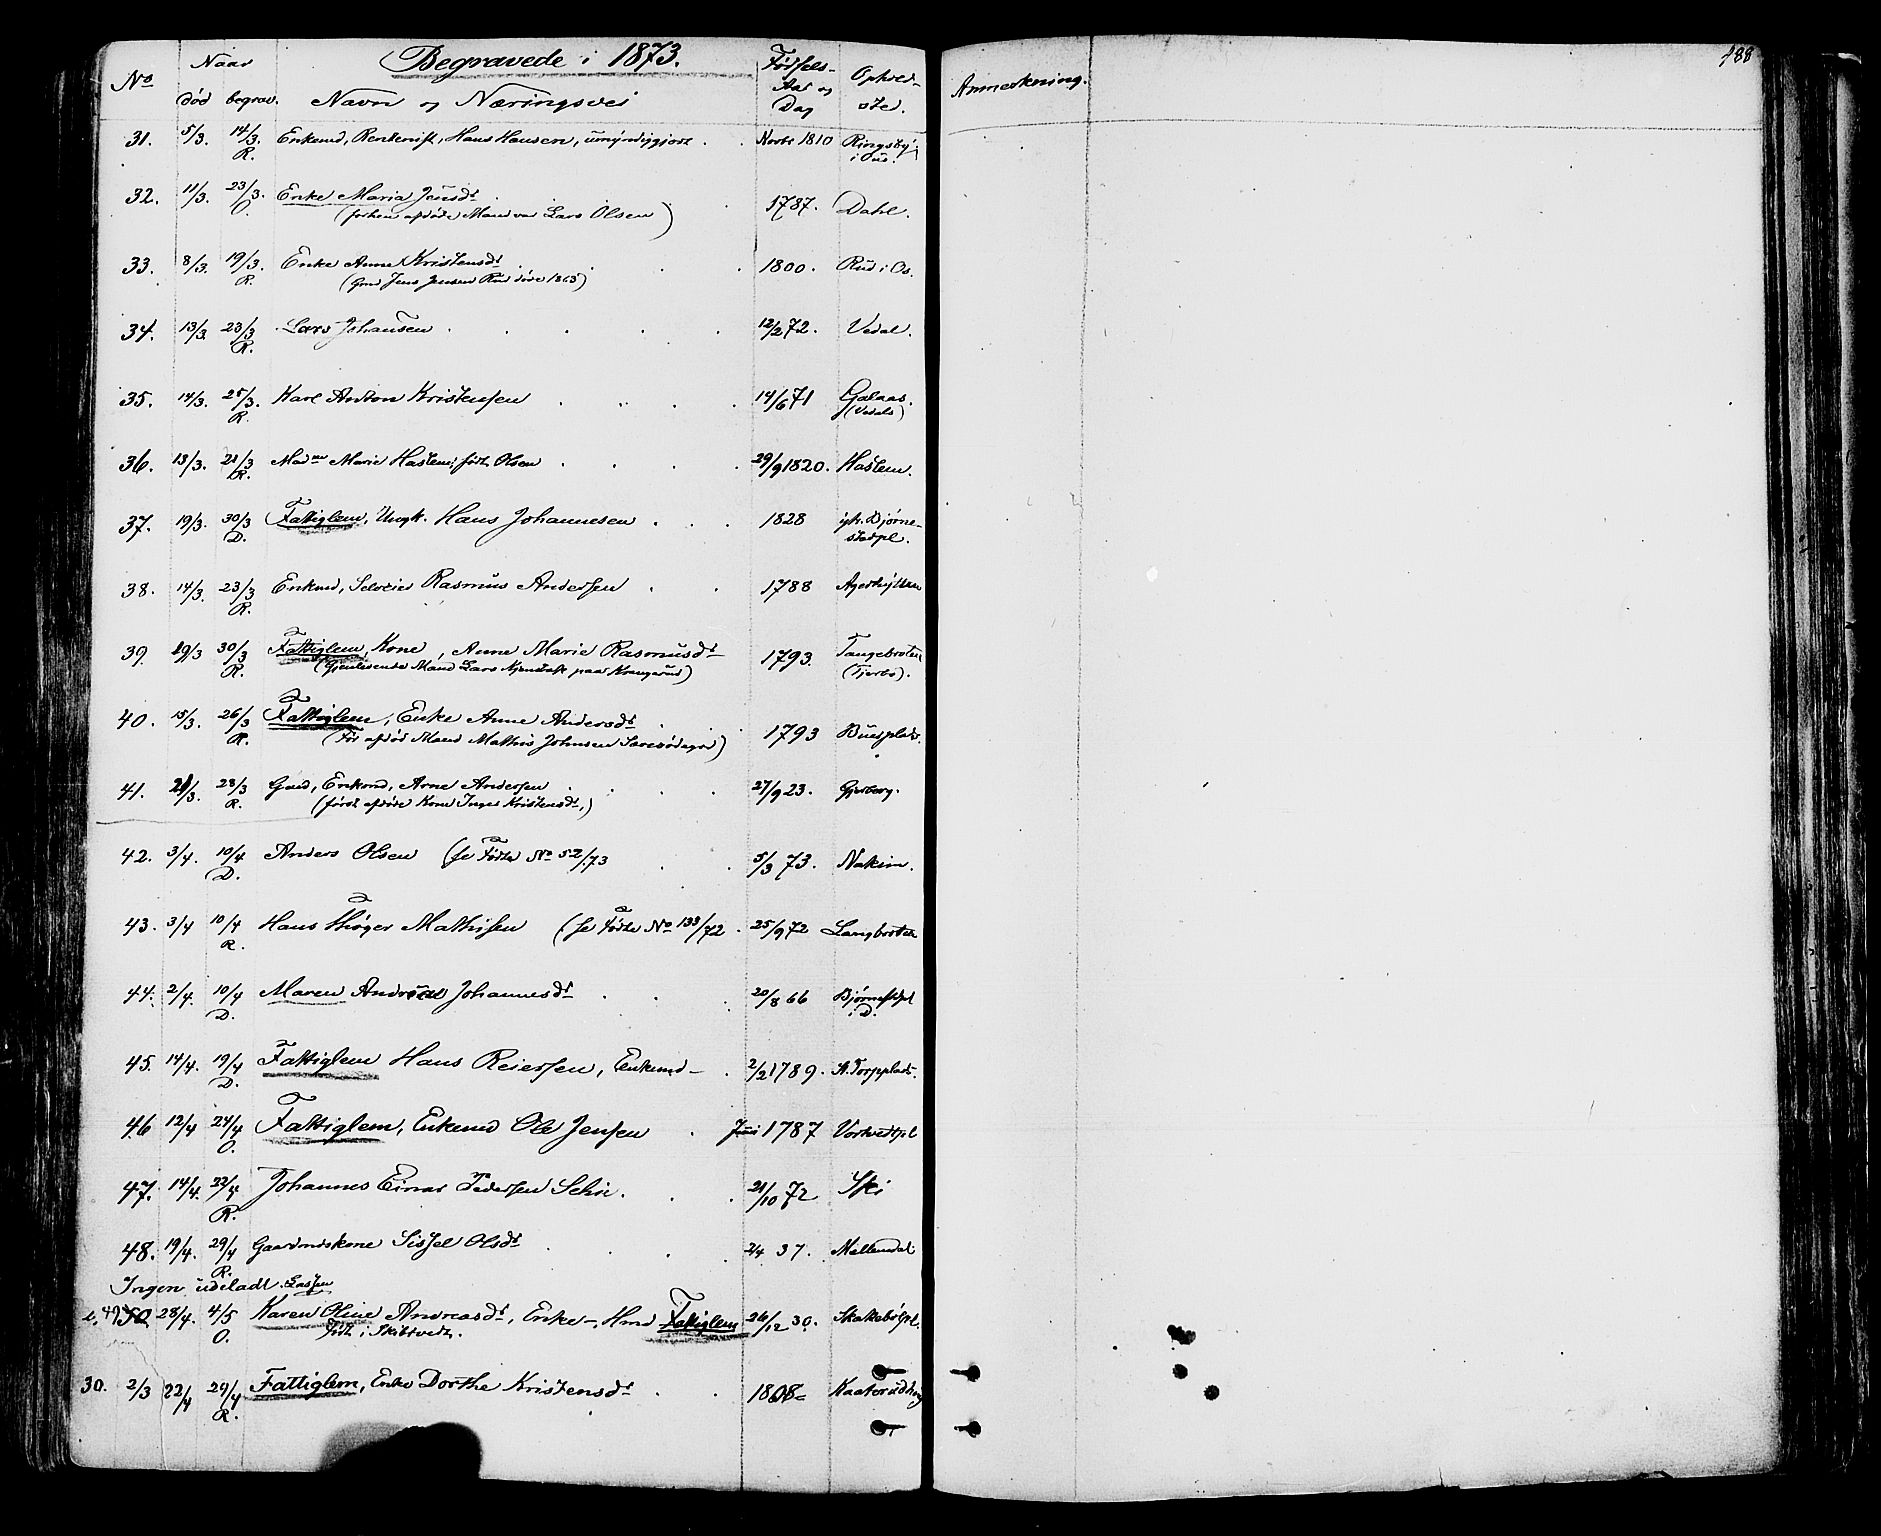 Begravede i 1873.
No Naar død begrav. Navn og Næringsvei Fødsels-Aar og Dag Opholdssted.
Anmerkning.
188
31. 5/3. 14/3. R. Enkemd, Rentenist, Hans Hansen, umyndiggjort Novbr 1810 Ringsby i Os.
32. 11/3. 23/3. O. Enke Maria Jensdr 1787. Dahl.
(forhen afdøde Mand var Lars Olsen)
33. 8/3. 19/3. R. Enke Anne Kristensdr 1800. Rud i Os.
(Gmd Jens Jensen Rud døde 1863)
34. 13/3. 23/3 R. Lars Johansen 12/2 72. Vedal.
35. 14/3. 25/3. R. Karl Anton Kristensen 14/6 71 Galaas.
(Vedals)
36. 13/3. 21/3 R. Madm Marie Haslem, født Olsen 29/9 1820. Haslem.
37. 19/3. 30/3 D. Fattiglem, Ungk. Hans Johannesen 1828 Bjørnestadpl.
38. 14/3. 23/3 R. Enkemd, Selveier Rasmus Andersen 1788
39. 19/3 30/3 R. Fattiglem, Kone, Anne Marie Rasmusdr 1793. Tangebroten
(Gjenlevende Mand Lars paa Krangerud) (Tjerbo).
40. 15/3. 26/3 R. Fattiglem, Enke Anne Andersdr 1793 Buesplads.
(Før afdød Mand Mathis Johnsen)
41. 21/3. 28/3 R. Gmd, Enkemd, Arne Andersen 27/9 23. Gjerberg.
(først afdøde Kone Inger Kristensdr,)
42. 3/4. 10/4 D. Anders Olsen (se Fødte No 52/73 5/3 73. Nakim.
43. 3/4 10/4 R. Hans Thøger Mathisen (se Fødte No 133/72 25/9 72 Langbroten
44. 2/4. 10/4 D. Maren Andrea Johannesdr 20/8 66 Bjørnestpl i D.
45. 14/4. 19/4 D. Fattiglem Hans Reiersen, Enkemd 2/2 1789. St. Torpplads.
46 12/4 24/4 O. Fattiglem, Enkemd Ole Jensen Juni 1787 Vortvedtpl
47. 14/4. 22/4 R. Johannes Einar Pedersen Schie. 21/10 72 Ski
48. 19/4. 29/4 R. Gaardmdskone Sissel Olsdr 2/4 37. Mellemdal
Ingen udeladt. Lassen
50 28/4. 4/5 O. Karen Oline Andreasdr, Enke, Hmd Fattiglem 26/12 30. Skakebølpl.
født i Skibtvedt.
30. 2/3 22/4 29/4 R. Fattiglem, Enke Dorthe Kristensdr 1808